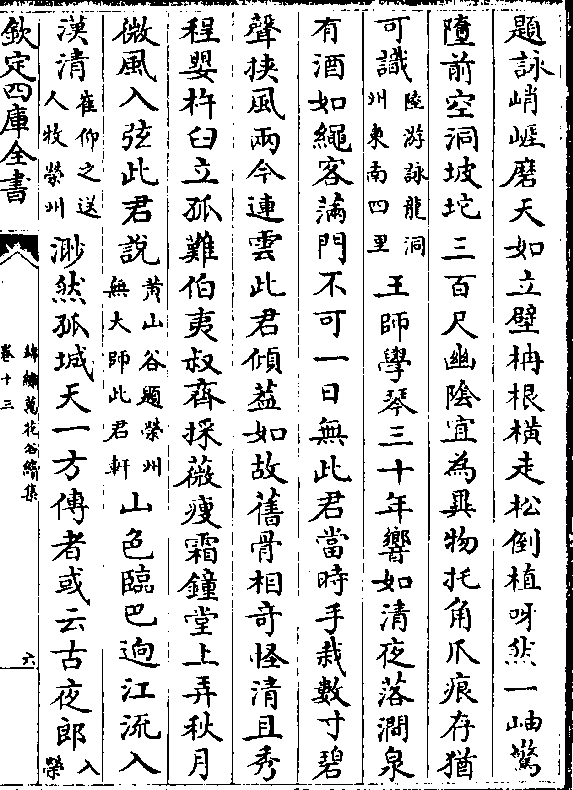 題詠峭崕磨天如立壁柟根橫走松倒植呀然一岫驚
墮前空洞坡坨三百尺幽陰宜為異物托角爪痕存猶
可識陸游詠龍洞州東南四里王師學琴三十年響如清夜落澗泉
有酒如繩客滿門不可一日無此君當時手栽數寸碧
聲挾風雨今連雲此君傾葢如故舊骨相竒怪清且秀
程嬰杵臼立孤難伯夷叔齊採薇瘦霜鐘堂上弄秋月
微風入弦此君說黄山谷題榮州無大師此君軒山色臨巴迥江流入
漢清崔仰之送人牧榮州渺然孤城天一方傳者或云古夜郎入榮
欽定四庫全書
錦繡萬花谷續集
卷十三
六